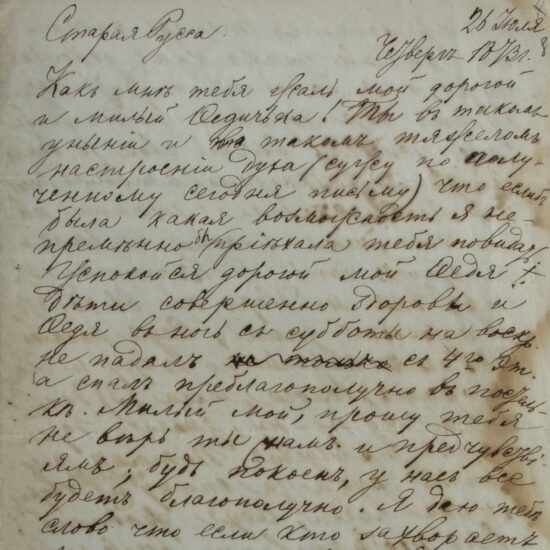 Старая Русса. 26 Июля
Четвергъ 1873 г.
Какъ мнѣ тебя жаль мой дорогой
и милый Өедичька! Ты въ такомъ
уныніи и въ такомъ тяжеломъ
настроеніи духа (сужу по полу-
ченному сегодня письму) что еслибъ
была какая возможность я не-
премѣнно бы пріѣхала тебя повидать.
Успокойся дорогой мой Өедя!
Дѣти совершенно здоровы и
Өедя въ ночь съ субботы на воскр.
не падалъ съ 4го эт.
а спалъ преблагополучно въ постель-
кѣ. Милый мой, прошу тебя
не вѣрь ты снамъ и предчувстві-
ямъ; будь покоенъ, у насъ все
будетъ благополучно. Я даю тебѣ
слово что если кто захвораетъ